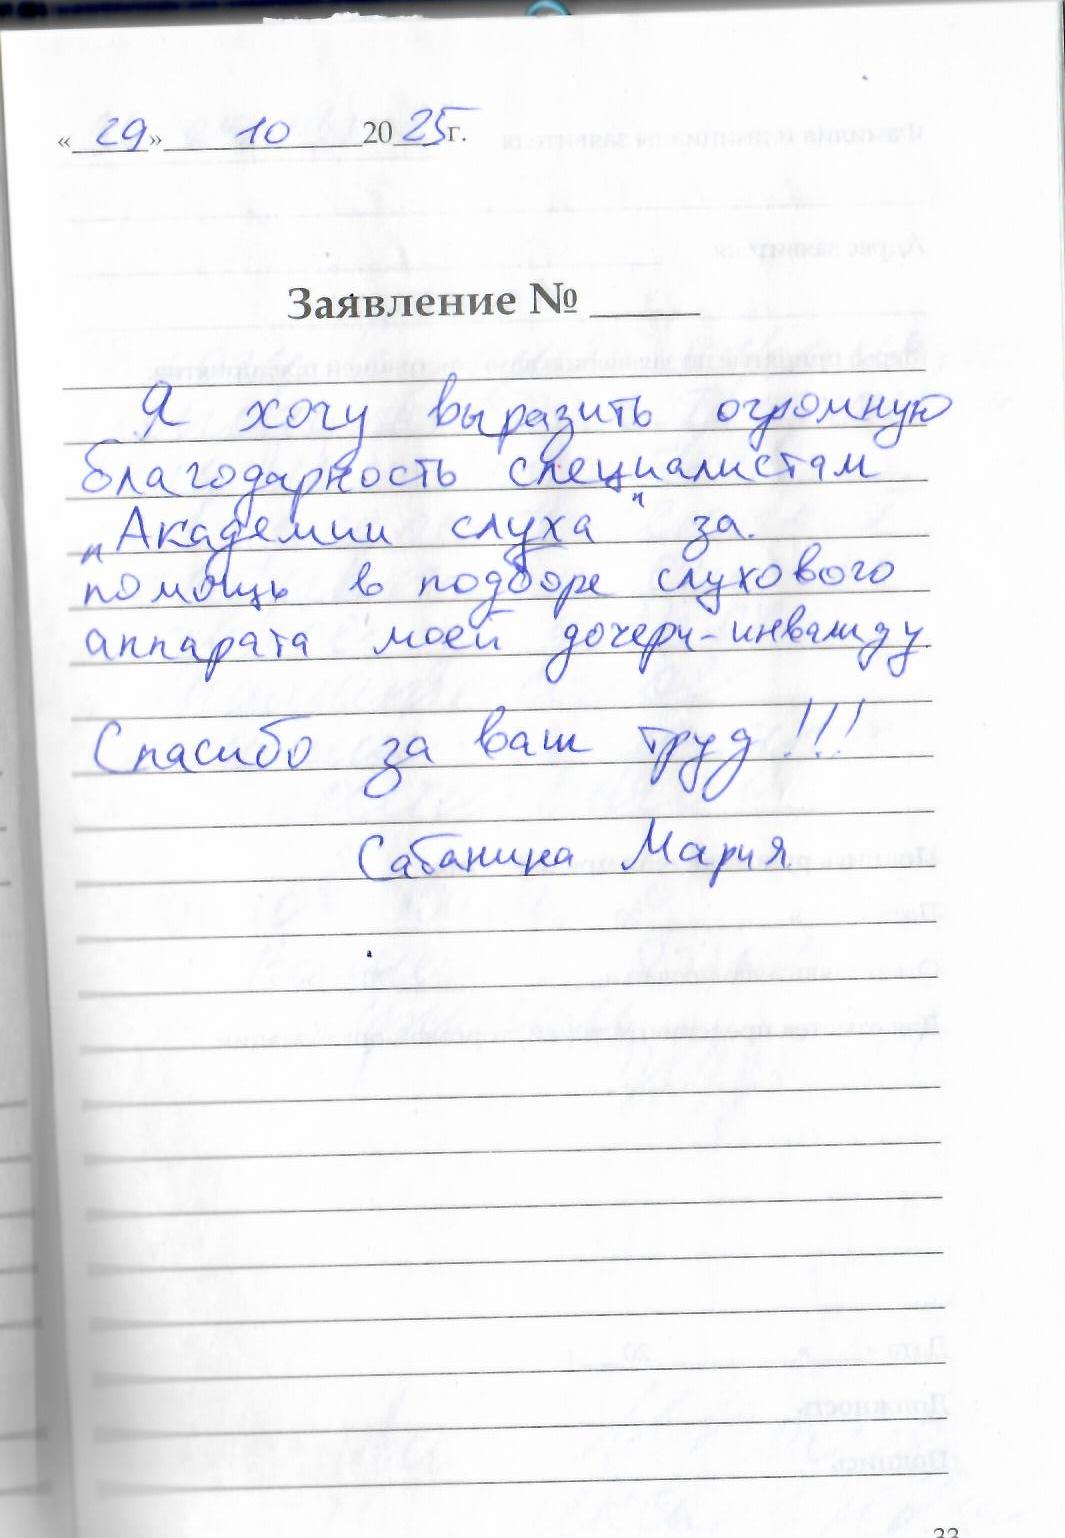 «29» 10 2025г.
Заявление № ____
Я хочу выразить огромную
благодарность специалистам
„Академии слуха" за
помощь в подборе слухового
аппарата моей дочери-инвалиду.
Спасибо за ваш труд!!!
Сабанина Мария
33